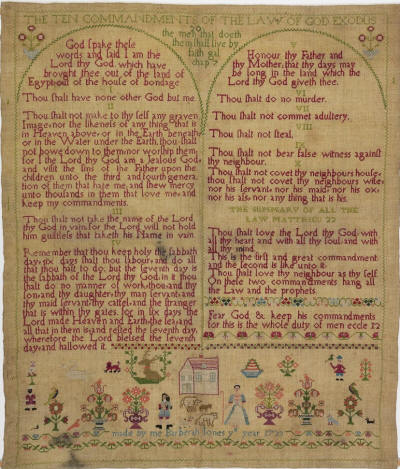 THE TEN COMMANDMENTS OF THE LAW OF GOD EXODUS
the man that doeth
them shall live by
faith gal
chap 3
God spake these
words and said I am the
Lord thy God which have
brought thee out of the land of
Egypt out of the house of bondage
I
Thou shalt have none other God but me
II
Thou shalt not make to thy self any graven
Image nor the likeness of any thing that is
in Heaven above or in the Earth beneath
or in the Water under the Earth thou shalt
not bowe down to them nor worship them
for I the Lord thy God am a Jealous God
and visit the sins of the Father upon the
children unto the third and fourth genera
tion of them that hate me and shew mercy
unto thousands in them that love me and
keep my commandments
III
Thou shalt not take the name of the Lord
thy God in vain for the Lord will not hold
him guiltless that taketh his Name in vain
IV
Remember that thou keep holy the sabbath
day six days shalt thou labour and do all
that thou hast to do but the seventh day is
the sabbath of the Lord thy God in it thou
shalt do no manner of work thou and thy
son and thy daughter thy man servant and
thy maid servant thy cattel and the stranger
that is within thy gates for in six days the
Lord made Heaven and Earth the sea and
all that in them is and rested the seventh day
wherefore the Lord blessed the seventh
day and hallowed it
Honour thy Father and
thy Mother that thy days may
be long in the land which the
Lord thy God giveth thee
VI
Thou shalt do no murder
VII
Thou shalt not commet adultery
VIII
Thou shalt not steal
IX
Thou shalt not bear false witness against
thy neighbour
Thou shalt not covet thy neighbours house
thou shalt not covet thy neighbours wife
nor his servant nor his maid nor his ox
nor his ass nor any thing that is his
THE SUMMARY OF ALL THE
LAW MATTHEU 22
Thou shalt love the Lord thy God with
all thy heart and with all thy soul and with
all thy mind
This is the first and great commandment
and the second is like unto it
Thou shalt love thy neighbour as thy self
On these two commandments hang all
the Law and the prophets
Fear God & keep his commandments
for this is the whole duty of men eccle 12
made by me Barberah Jones year